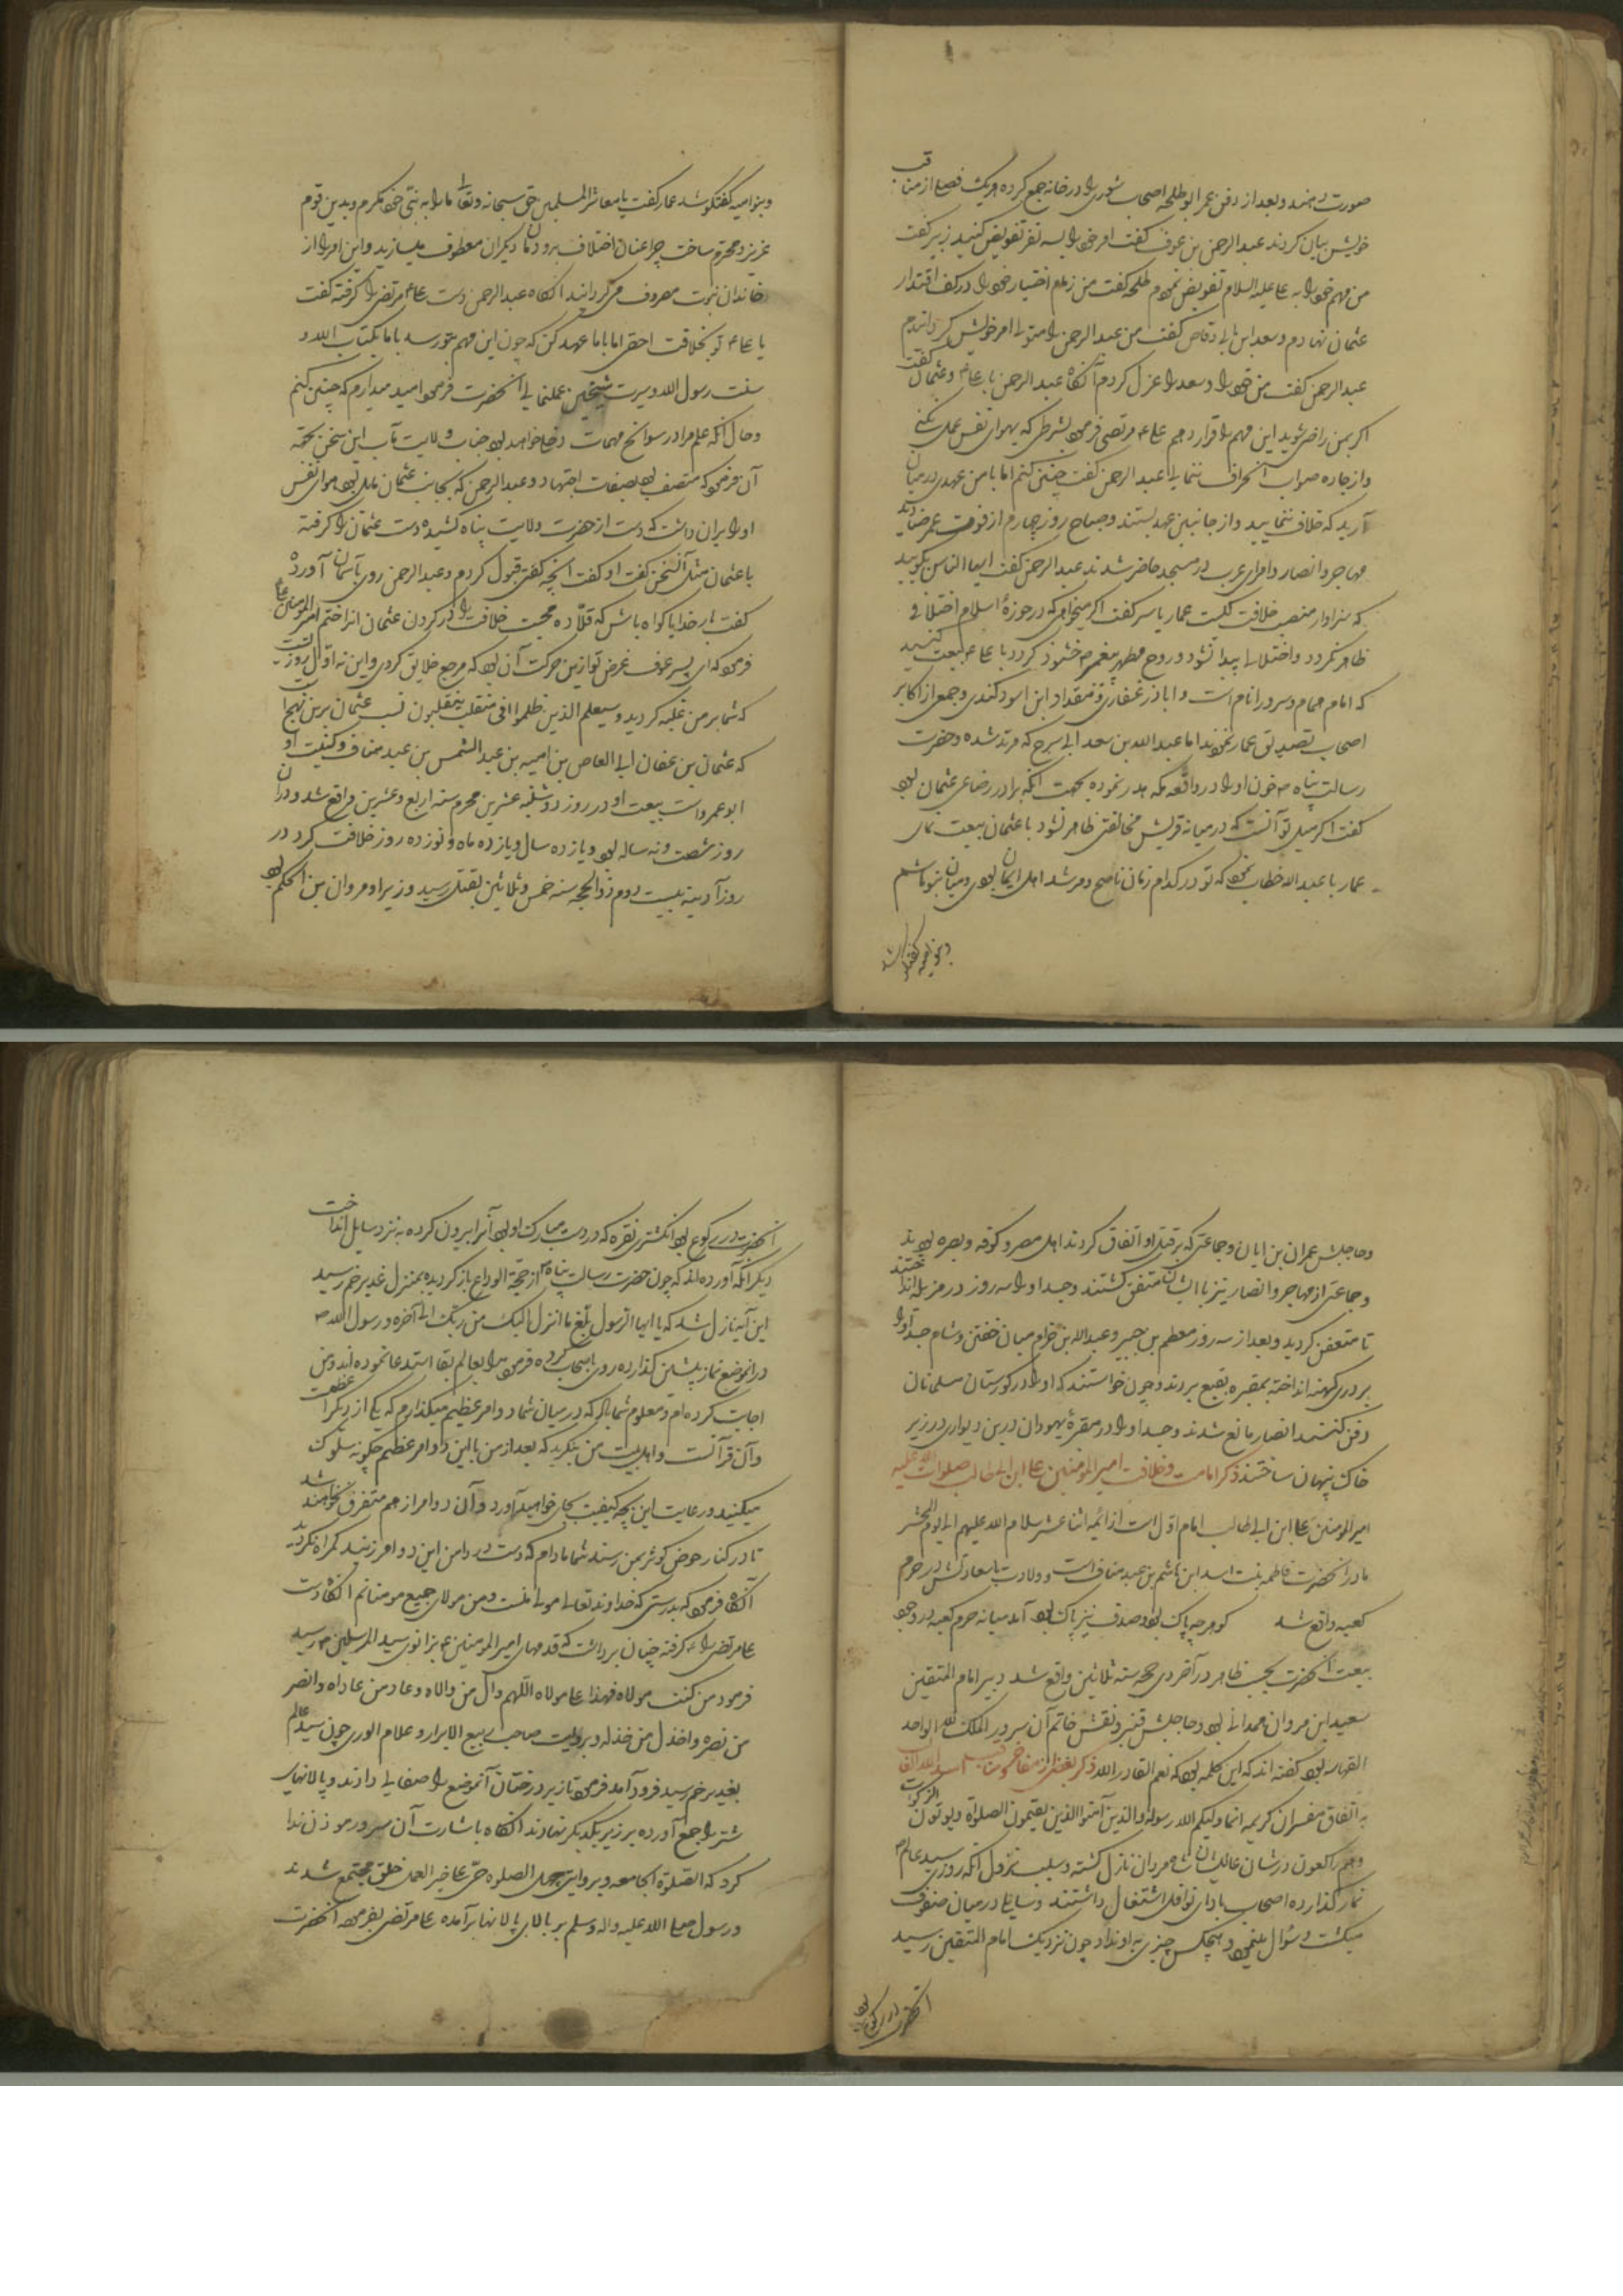 صورت دهند و بعد از دفن عمر ابو طلحه اصحاب شوری را در خانه جمع کرده هریک فصلی از مناقب
خویش بیان کردند عبد الرحمن بن عوف گفت امر خود را بسه نفر تفویض کنید زبیر گفت
من مهم خود را به علی علیه السلام تفویض نمودم طلحه گفت من زمام اختیار خود را در کف اقتدار
عثمان نهادم و سعد ابن ابی وقاص گفت من عبد الرحمن را متولی امر خویش گردانیدم
عبد الرحمن گفت من خود را و سعد را عزل کردم آنکاه عبد الرحمن با علی و عثمان گفت
اکر بمن راضی شوید این مهم را قرار دهم علی مرتضی فرمود بشرطی که بهوای نفس عمل نکنی
و از جاده صواب انحراف ننمایی عبد الرحمن گفت چنین کنم اما با من عهدی در میان
آرید که خلاف ننمایید و از جانبین عهد بستند و صباح روز چهارم از فوت عمر
مهاجر و انصار و امرای عرب در مسجد حاضر شدند عبد الرحمن گفت ایها الناس بکویید
که سزاوار منصب خلافت کیست عمار یاسر گفت اکر میخواهی که در حوزهٔ اسلام اختلافی
ظاهر نکردد و اختلالی پیدا نشود و روح مطهر پیغمبر خشنود کردد با علی بیعت کنید
که امام همام و سرور انام است و اباذر غفاری و مقداد ابن اسود کندی و جمعی از اکابر
اصحاب تصدیق عمار نمودند اما عبد الله بن سعد ابی سرح که مرتد شده و حضرت
رسالت پناه خون او را در واقعه مکه هدر نموده بجهت انکه برادر رضاعی عثمان بود
گفت اکر میل تو آنست که در میانه قریش مخالفتی ظاهر نشود با عثمان بیعت نمای
عمار با عبد الله خطاب نمود که تو در کدام زمان ناصح و مرشد اهل ایمان بودی و میان بنو هاشم
و بنو امیه گفتگو شد
و بنو امیه گفتگو شد عمار گفت یا معاشر المسلمین حق سبحانه و تعالی ما را به نبی خود مکرم و بدین قوم
عزیز و محترم ساخت چرا عنان اختلاف بدودمان دیکران معطوف میسازید و این امر را از
خاندان نبوت مصروف می گردانید آنکاه عبد الرحمن دست علی مرتضی را گرفته گفت
یا علی تو بخلافت احقی اما با ما عهد کن که چون این مهم بتو رسد با ما بکتاب الله و
سنت رسول الله و سیرت شیخین عمل نمایی آنحضرت فرمود امید میدارم که چنین کنم
و حال آنکه علم مرا در سوانح مهمات دخل خواهد بود جناب ولایت مآب این سخن بجهة
آن فرمود که متصف بود بصفات اجتهاد و عبد الرحمن که بجانب عثمان مایل بود هوای نفس
او را بران داشت که دست از حضرت ولایت پناه کشیده دست عثمان را گرفته
با عثمان مثل آن سخن گفت او گفت آنچه گفتی قبول کردم و عبد الرحمن روی بآسمان آورده
گفت بار خدایا کواه باش که قلاده محبت خلافت را در کردن عثمان انداختم امیر المومنین علی
فرمود که ای پسر عوف غرض تو ازین حرکت آن بود که مرجع خلایق کردی و این نه اول روزیست
که شما بر من غلبه کردید و سیعلم الذین ظلموا ای منقلب ینقلبون نسب عثمان برین نهج است
که عثمان بن عفان ابی العاص بن امیه بن عبد الشمس بن عبد مناف و کنیت او
ابو عمرو است بیعت او در روز دوشنبه عشرین محرم سنه اربع و عشرین واقع شد و در آن
روز شصت و نه ساله بود و یازده سال و یازده ماه و نوزده روز خلافت کرد در
روز آدینه بیست دوم ذو الحجه سنه خمس و ثلاثین بقتل رسید وزیر او مروان بن الحکم بود
و حاجبش عمران بن ابان و جماعتی که بر قتل او اتفاق کردند اهل مصر و کوفه و بصره بودند
و جماعتی از مهاجر و انصار نیز با ایشان متفق کشتند و جسد او را سه روز در مزبله انداختند
تا متعفن کردید و بعد از سه روز مطعم بن جبیر و عبد الله بن حزام میان خفتن و شام جسد او را
بر دری کهنه انداخته بمقبره بقیع بردند و چون خواستند که او را در کورستان مسلمانان
دفن کنند انصار مانع شدند و جسد او را در مقبرهٔ یهودان در بن دیواری در زیر
خاک پنهان ساختند ذکر امامت و خلافت امیر المومنین علی ابن ابی طالب صلوات الله علیه
امیر المومنین علی ابن ابی طالب امام اول است از ائمه اثنا عشر سلام الله علیهم الی یوم المحشر
مادر آنحضرت فاطمه بنت اسد ابن هاشم بن عبد مناف است و ولادت با سعادتش در حرم
کعبه واقع شد کوهر چه پاک بود و صدف نیز پاک بود آمد میانه حرم کعبه در وجود
بیعت آنحضرت بحسب ظاهر در آخر ذی حجه سنه ثلاثین واقع شد دبیر امام المتقین
سعید ابن مروان همدانی بود و حاجبش قنبر و نقش خاتم آن سرور الملک لله الواحد
القهار بود گفته اند که این کلمه بود که نعم القادر الله ذکر بعضی از مفاخر و مناقب اسد الله الغالب
به اتفاق مفسران کریمه انما ولیکم الله رسوله والذین آمنوا الذین یقیمون الصلوة و یوتون الزکوة
و هم راکعون در شان عالیشان شاه مردان نازل کشته و سبب نزول آنکه روزی سید عالم
نماز گذارده اصحاب بادای نوافل اشتغال داشتند و سایلی در میان صفوف
میکشت و سؤال مینمود و هیچکس چیزی به او نداد چون نزدیک امام المتقین رسید
آنحضرت در رکوع بود
آنحضرت در رکوع بود انکشتری نقره که در دست مبارک او بود آنرا بیرون کرده به نزد سایل انداخت
دیکر آنکه آورده اند که چون حضرت رسالت پناه از حجة الوداع باز کردیده بمنزل غدیر خم رسید
این آیه نازل شد که یا ایها الرسول بلغ ما انزل الیک من ربک الی آخره و رسول الله
در انموضع نماز پیشین گذارده روی باصحاب کرده فرمود مرا بعالم بقا استدعا نموده اند و من
اجابت کرده ام و معلوم شما باد که در میان شما دو امر عظیم میگذارم که یکی از دیگر اعظمست
و آن قرآنست و اهل بیت من بنکرید که بعد از من با این دو امر عظیم چکونه سلوک
میکنید و رعایت این بچه کیفیت بجای خواهید آورد و آن دو امر از هم متفرق نخواهند شد
تا در کنار حوض کوثر بمن رسند شما مادام که دست در دامن این دو امر زنید گمراه نگردید
آنکاه فرمود که بدرستی که خداوند تعالی مولی منست و من مولای جمیع مومنانم آنکاه دست
علی مرتضی را گرفته چنان برداشت که قدمهای امیر المومنین بزانوی سید المرسلین رسید
فرمود من کنت مولاه فهذا علی مولاه اللهم وال من والاه و عاد من عاداه وانصر
من نصره واخذل من خذله و بروایت صاحب ربیع الابرار و علام الوری چون سید عالم
بغدیر خم رسید فرود آمد فرمود تا زیر درختان آنموضع را صفایی دادند و پالانهای
شتر را جمع آورده بر زبر یکدیکر نهادند آنکاه باشارت آن سرور موذن ندا
کرد که الصلوة الجامعه و بروایتی حی علی الصلوه حی علی خیر العمل خلق مجتمع شدند
و رسول صلی الله علیه واله وسلم بر بالای پالانها برآمده علی مرتضی بفرموده آنحضرت